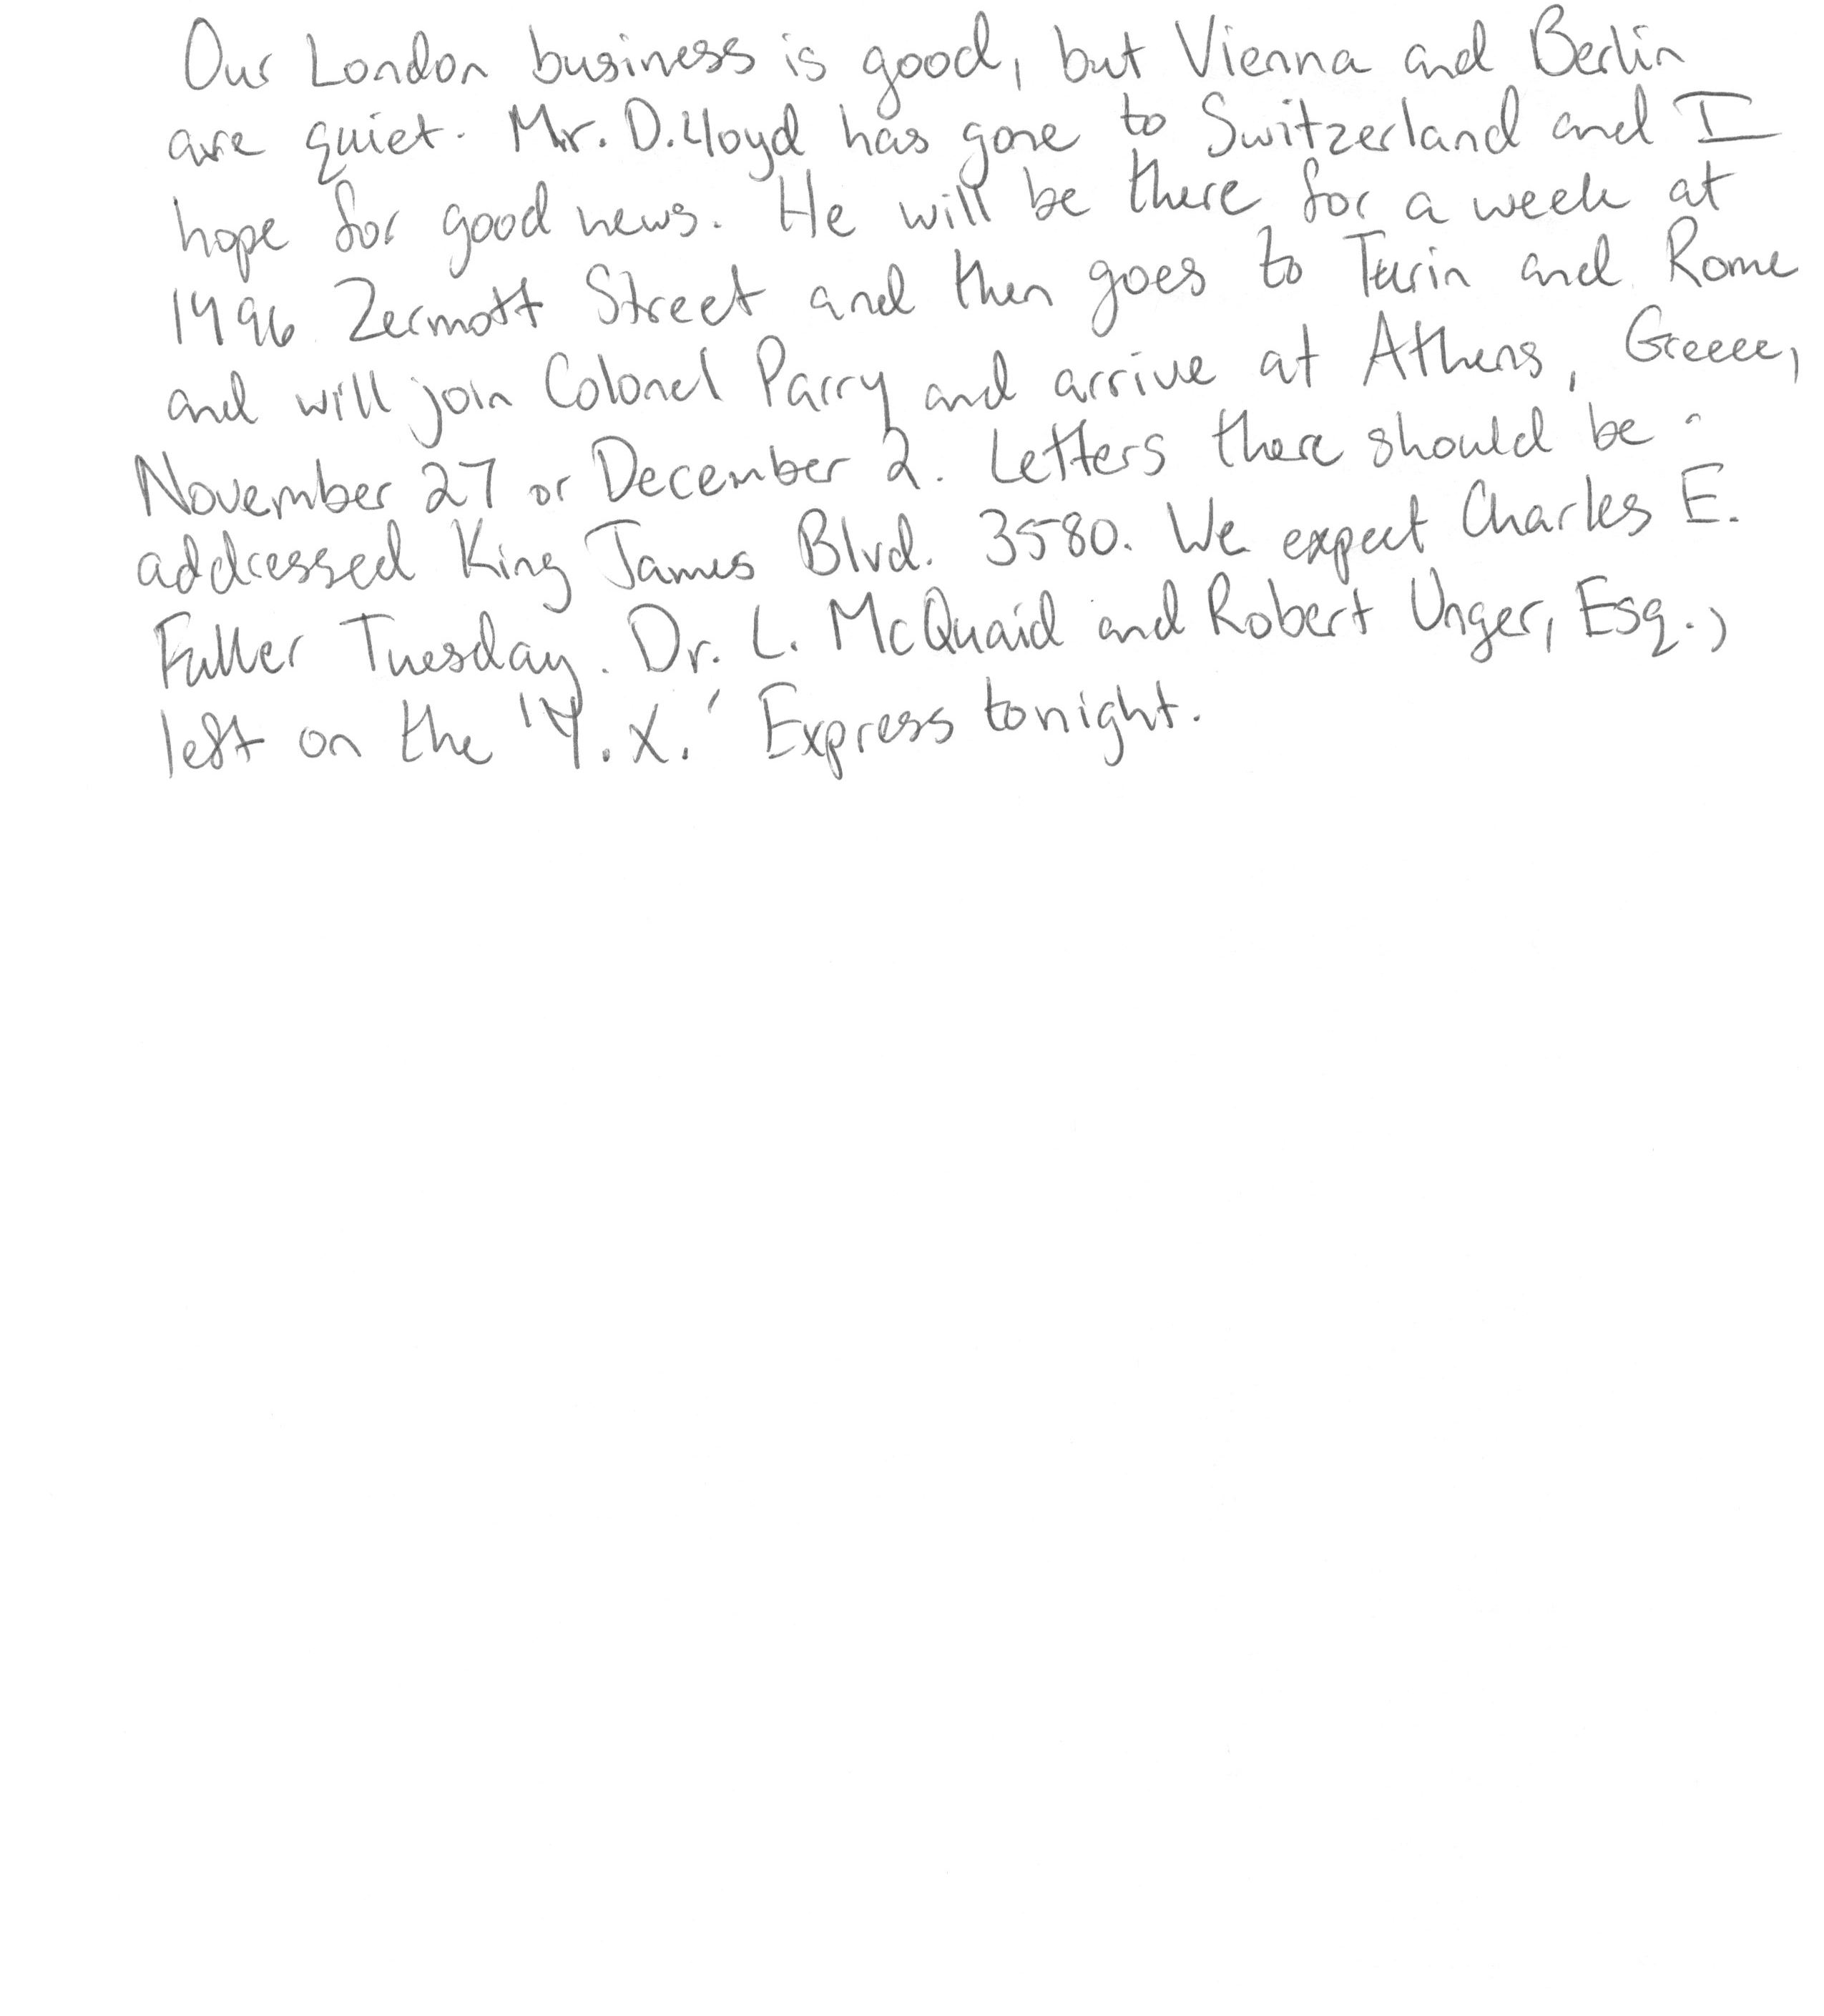 Our London business is good, but Vienna and Berlin
are quiet. Mr. D. Lloyd has gone to Switzerland and I
hope for good news. He will be there for a week at
1496 Zermott Street and then goes to Turin and Rome
and will join Colonel Parry and arrive at Athens, Greece,
November 27 or December 2. Letters there should be :
addressed King James Blvd. 3580. We expect Charles E.
Fuller Tuesday. Dr. L. McQuaid and Robert Unger, Esq.,
left on the 'Y.X.' Express tonight.